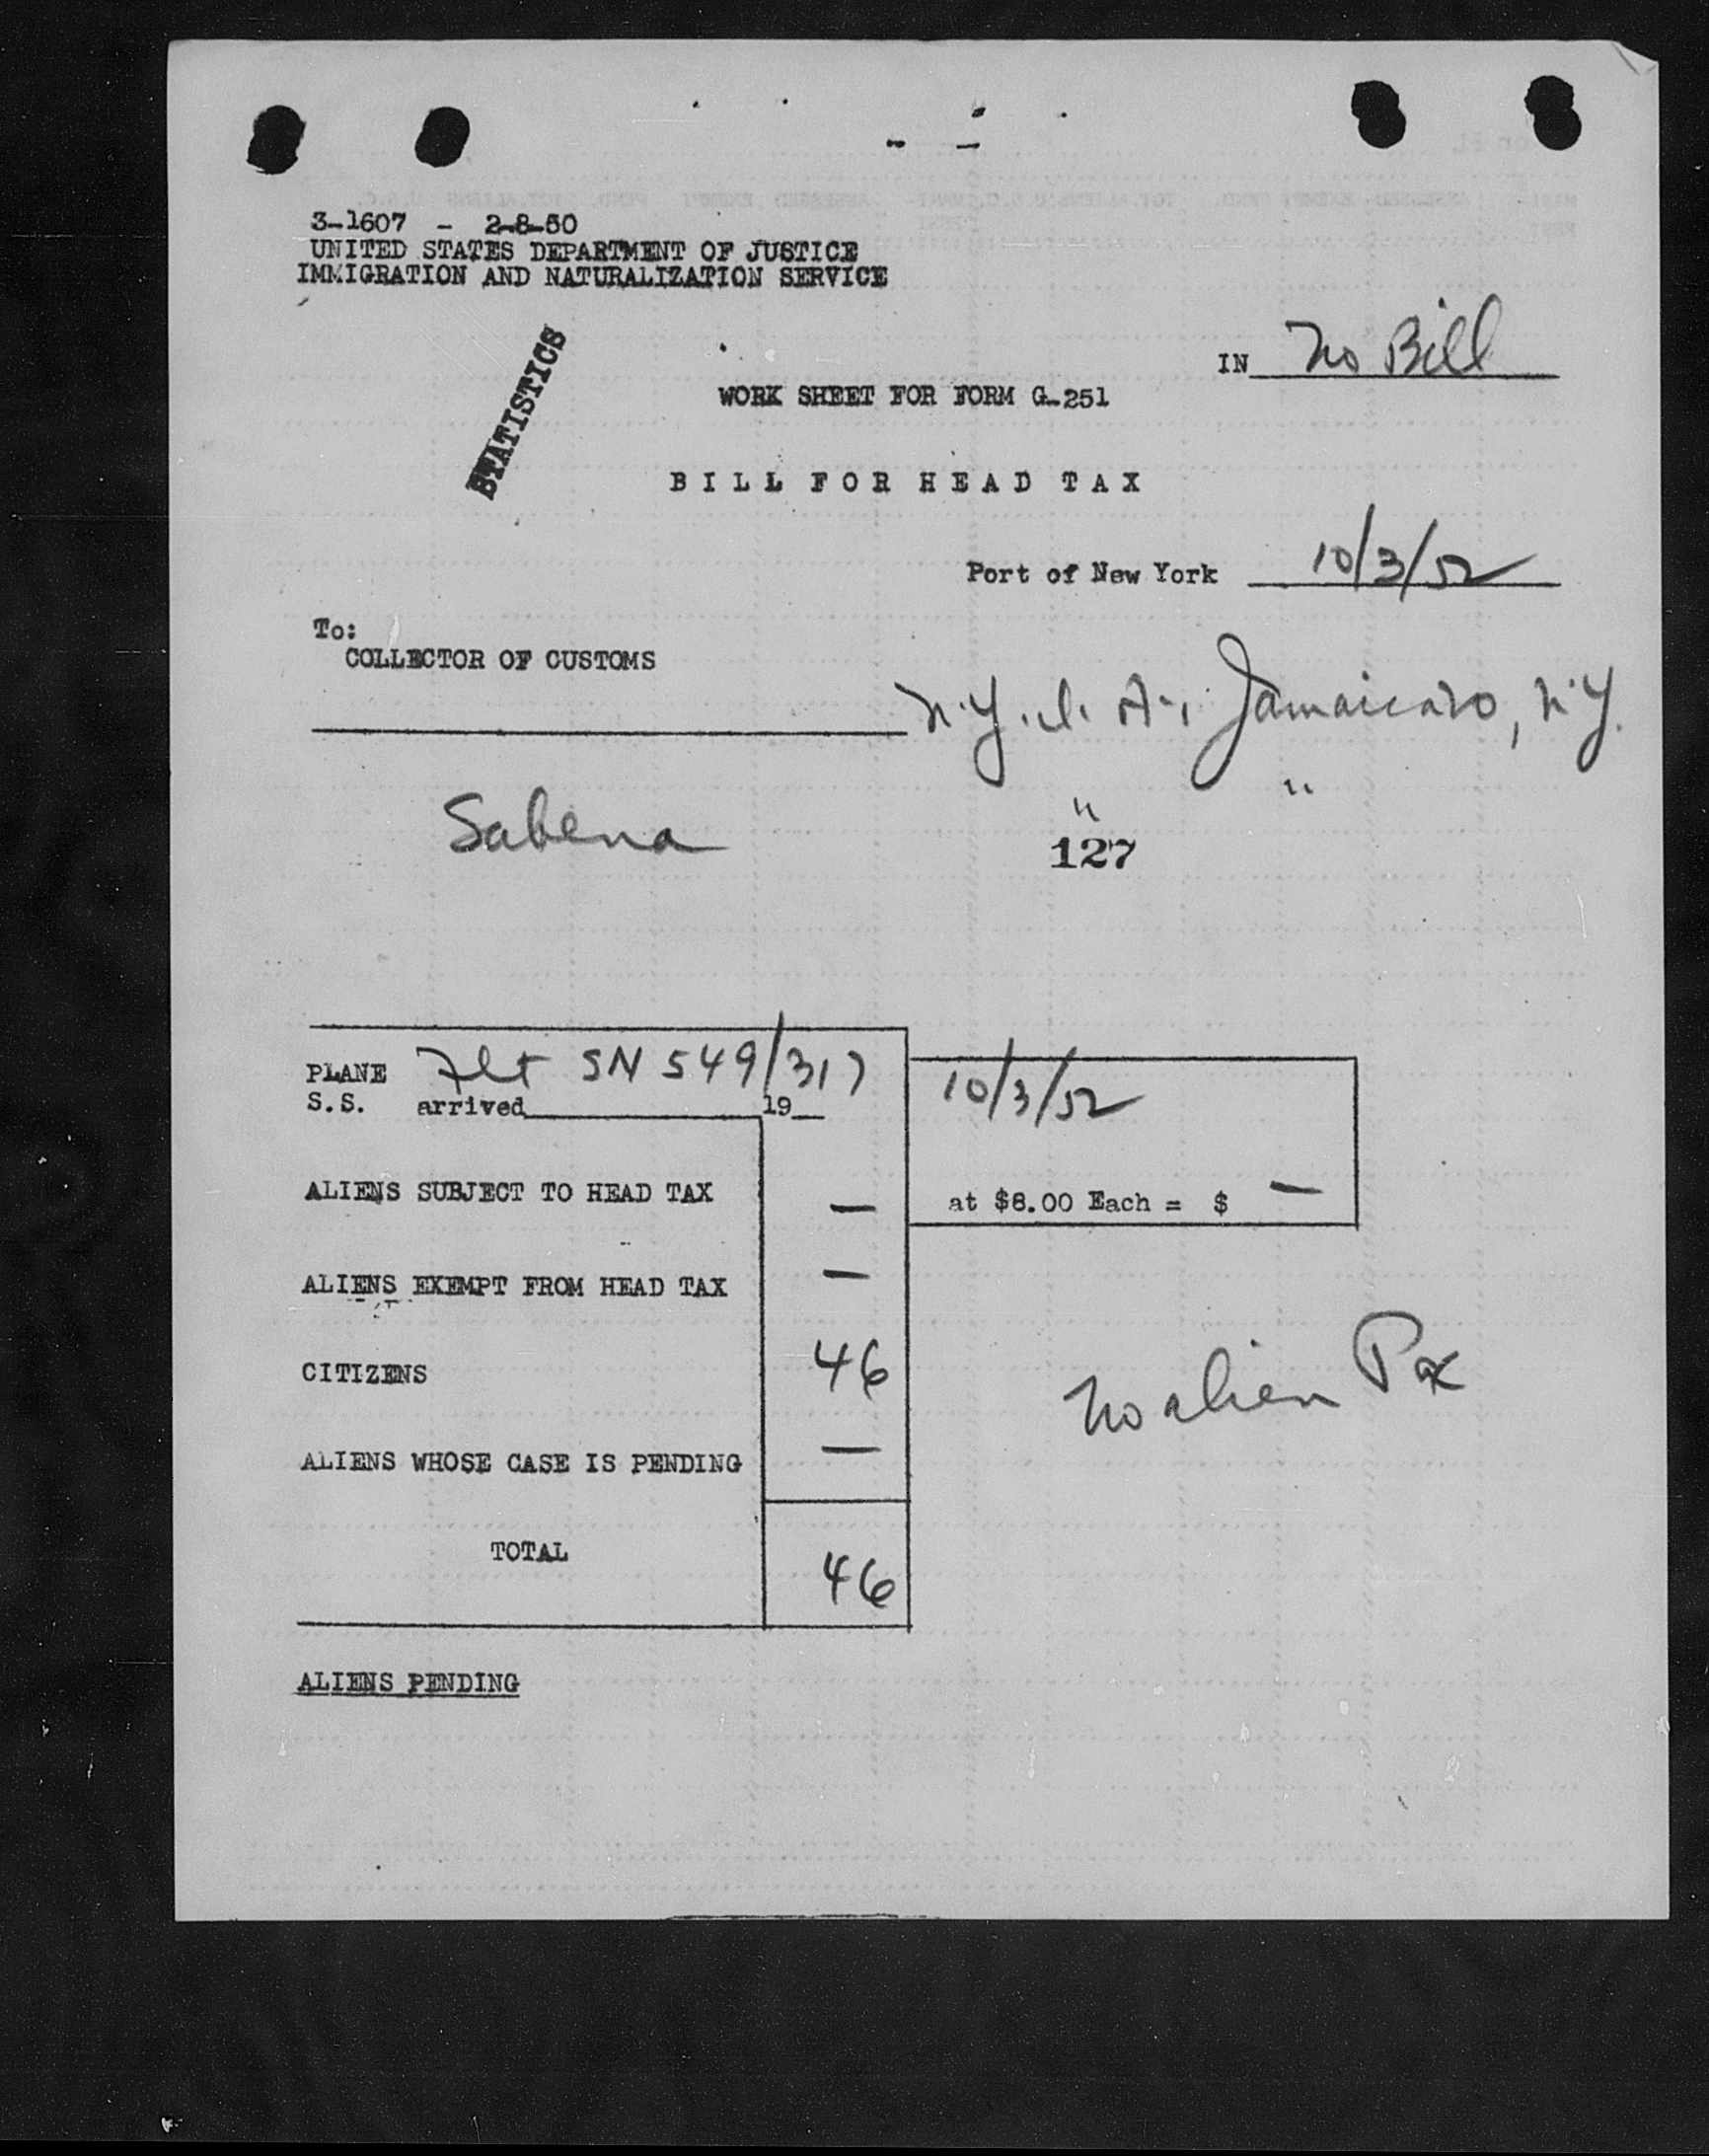 3-1607 - 2-8-50
UNITED STATES DEPARTMENT OF JUSTICE
IMMIGRATION AND NATURALIZATION SERVICE
STATISTICS
IN No Bill
WORK SHEET FOR FORM G-251
BILL FOR HEAD TAX
Port of New York 10/3/52
To:
COLLECTOR OF CUSTOMS
N.Y.I.A., N.Y.
Sabena " "
127
PLANE Flt SN 549/317 10/3/52
S.S. arrived 19
ALIENS SUBJECT TO HEAD TAX — at $8.00 Each = $ —
ALIENS EXEMPT FROM HEAD TAX —
CITIZENS 46
No alien Pax
ALIENS WHOSE CASE IS PENDING —
TOTAL 46
ALIENS PENDING